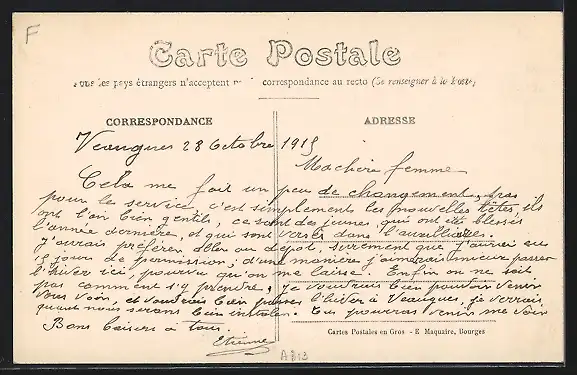 F
Carte Postale
Tous les pays étrangers n'acceptent pas la correspondance au recto (Se renseigner à la Poste)
CORRESPONDANCE
ADRESSE
Veaugues 28 Octobre 1915
Ma chère femme
Cela me fait un peu de changement, pas
pour le service, c'est simplements les nouvelles têtes, ils
ont l'air bien gentils, ce sont des jeunes qui ont été blessés
l'année dernière, et qui sont versés dans l'auxilliaire.
J'aurais préférer aller au dépot, surement que j'aurai eu
15 jours de permission, d'une manière j'aimerais mieux passer
l'hiver ici, pourvu qu'on me laisse. Enfin on ne sait
pas comment s'y prendre, je voudrais bien pouvoir venir
vous voir, et voudrais bien passer l'hiver à Veaugues, je verrais
quand nous serons bien installer. Tu pourras venir me voir
Bons baisers à tous.
Etienne
Cartes Postales en Gros - E. Maquaire, Bourges